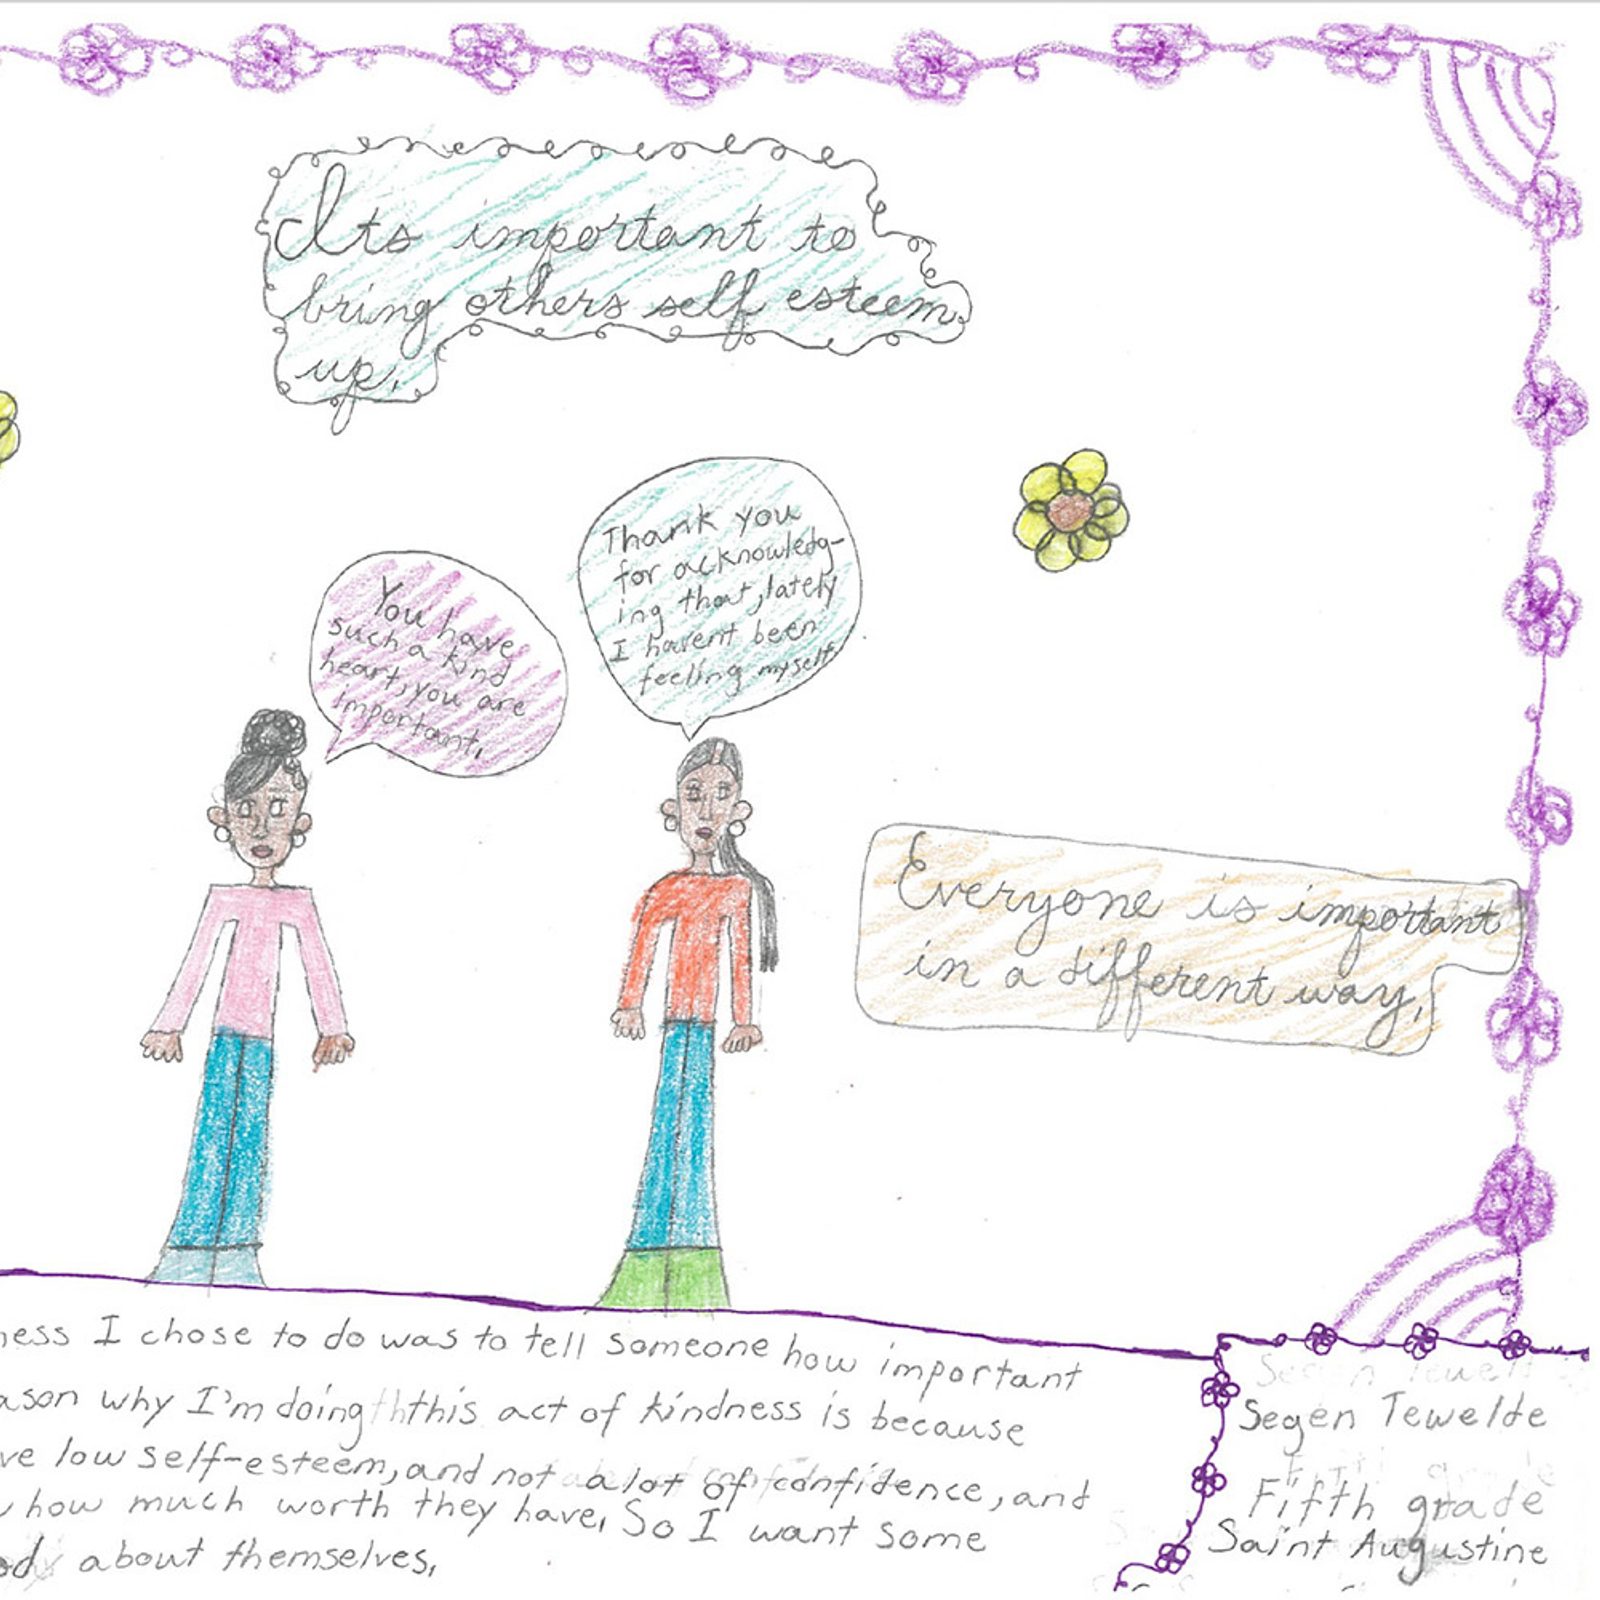 Its important to
bring others self esteem
up.
Thank you
for acknowledg-
ing that, lately
I havent been
feeling myself.
You have
such a kind
heart, you are
important.
Everyone is important
in a different way.
ness I chose to do was to tell someone how important
ason why I'm doing this act of kindness is because
ve low self-esteem, and not a lot of confidence, and
how much worth they have. So I want some
od about themselves.
Segen Tewelde
Fifth grade
Saint Augustine